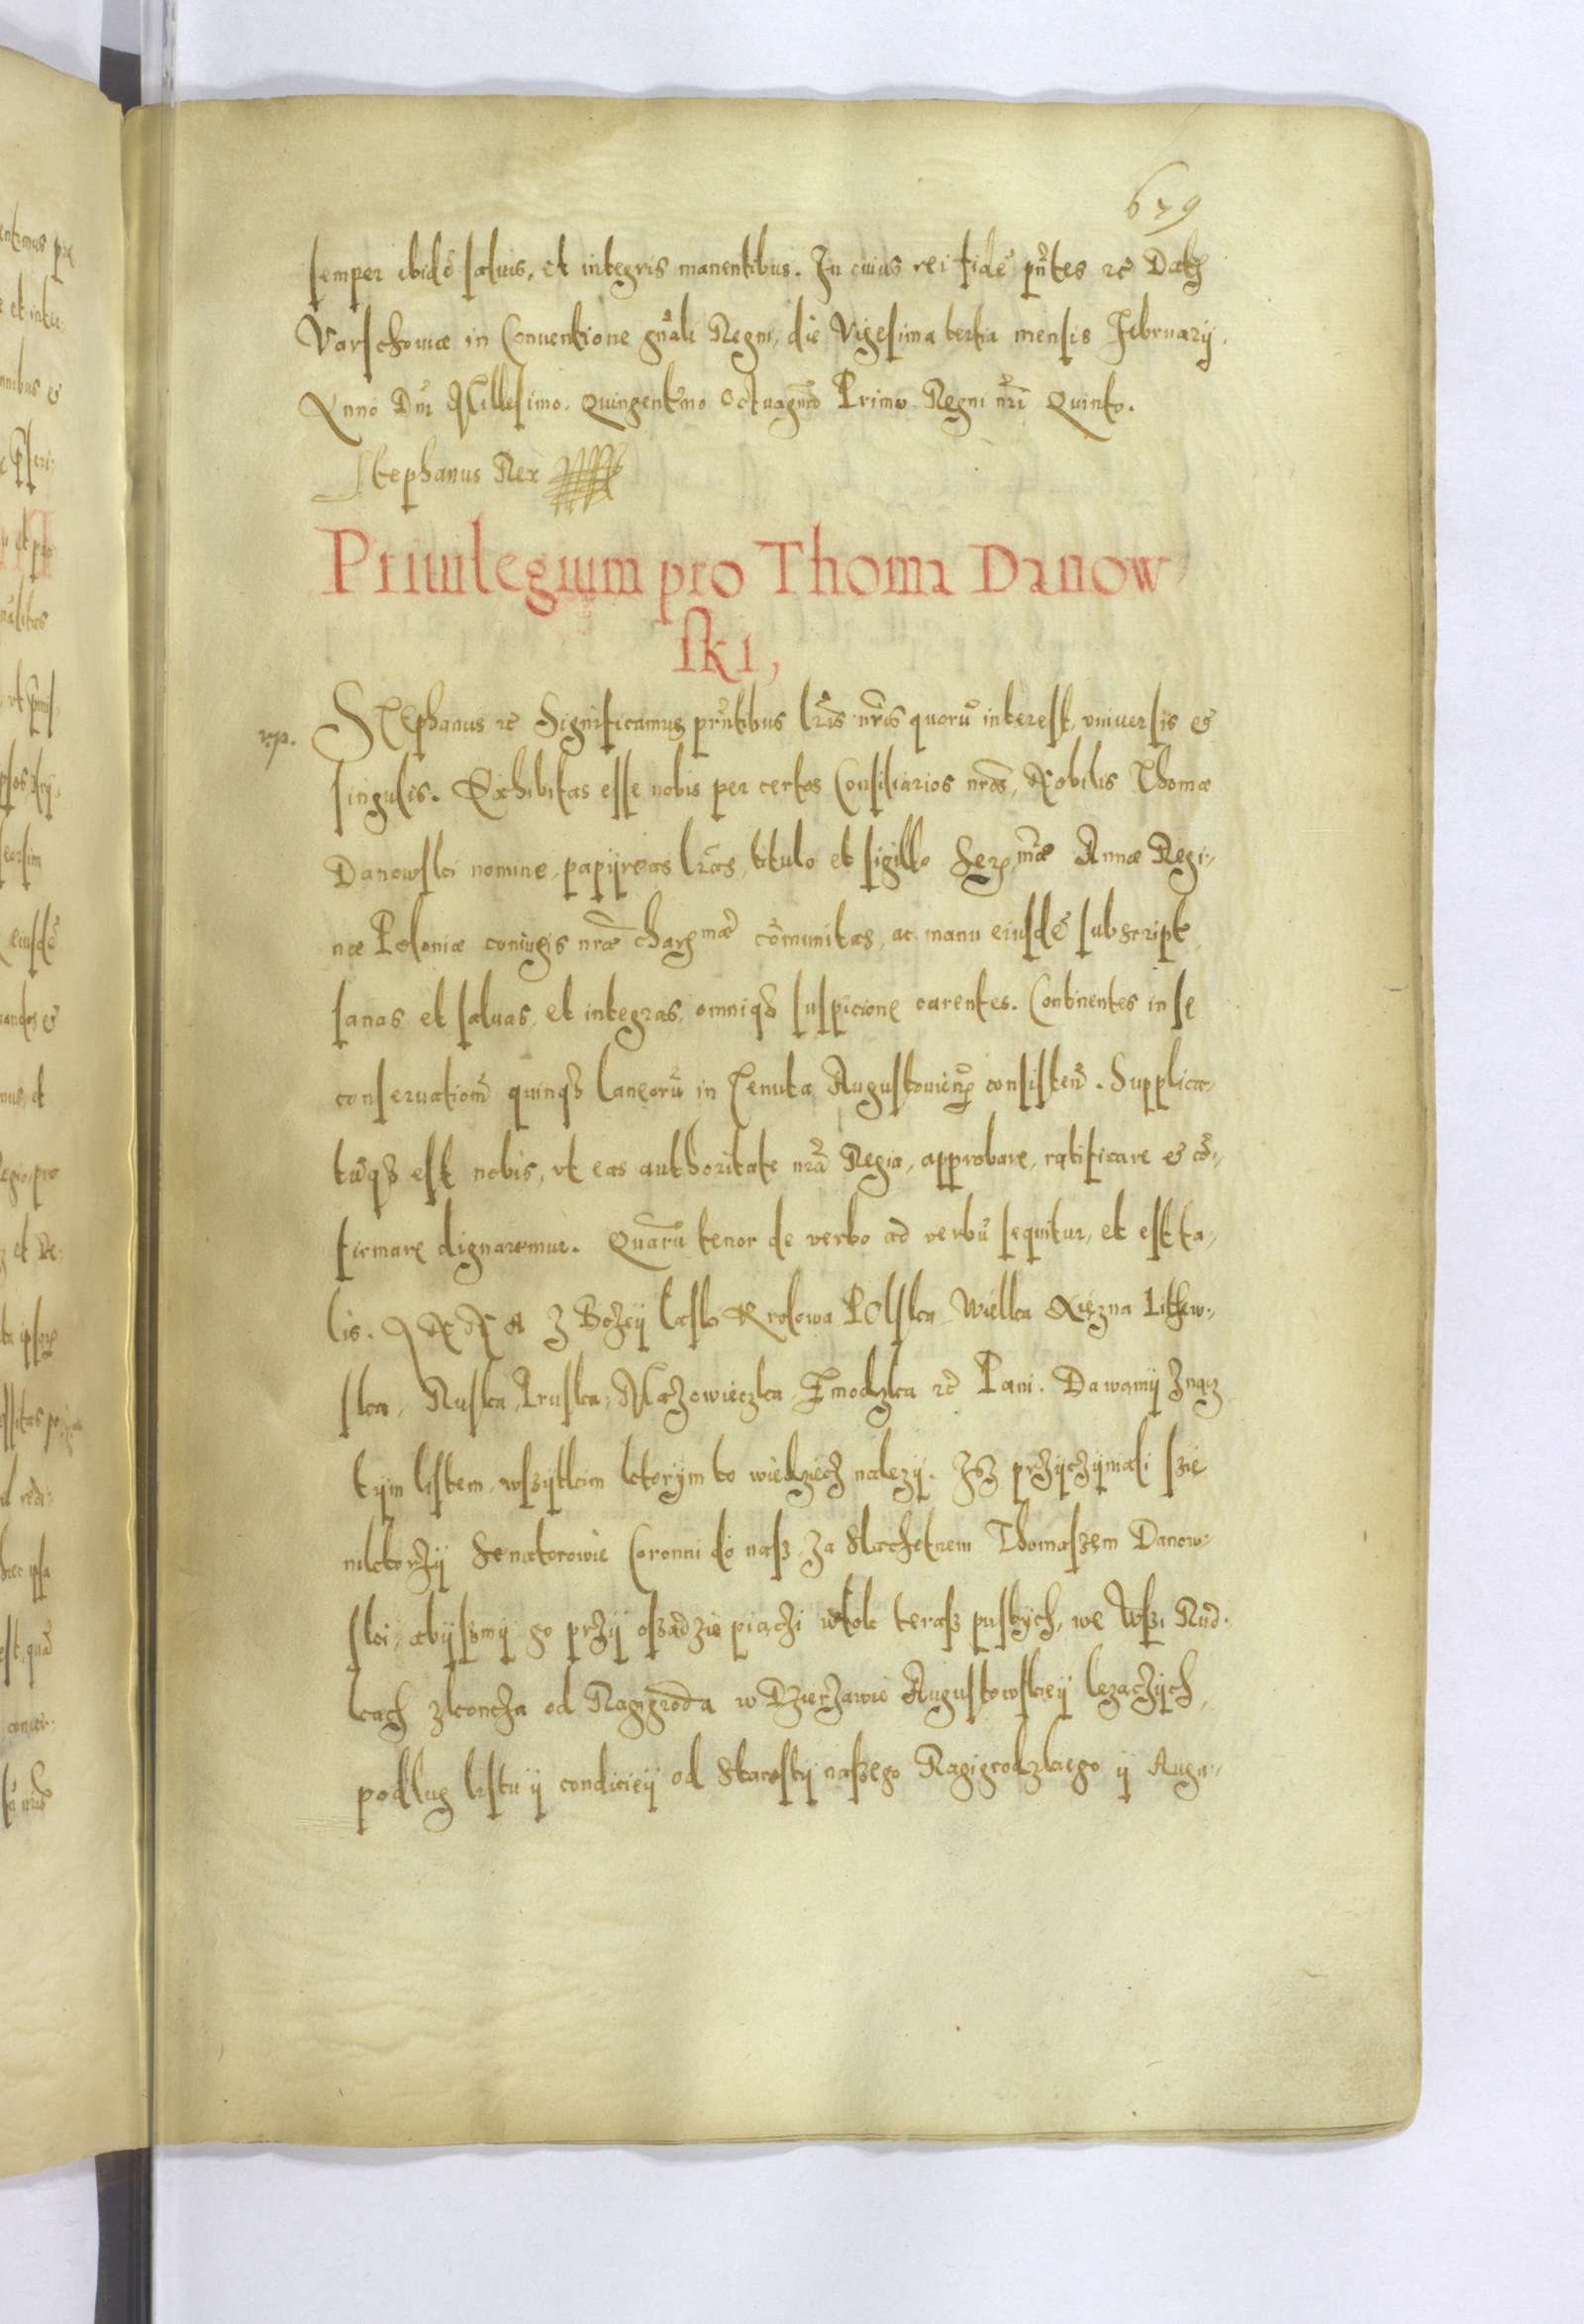 679
semper ibidē saluis, et integris manentibus. In cuius rei fidē pñtes ɾc Datꝫ
Varschoniæ in Conuentione gñali Regni, die Vigesima tertia mensis Februarij.
Anno Dñi Millesimo. Quingentmo Octuagmo Primo Regni nri Quinto.
Stephanus Rex
Priuilegium pro Thoma Danow
ski,
rp.
STephanus ɾc Significamus prñtibus lris nris quorū interest, vniuersis &
singulis. Exhibitas esse nobis per certos Consiliarios nros, Nobilis Thomæ
Danowski nomine, papijreas lras, titulo et sigillo Serꝫmæ Annæ Regi
næ Poloniæ coniugis nræ charꝫmæ cōmunitas, ac manu eiusdē subscript
sanas et saluas, et integras, omniqꝫ suspicione carentes. Continentes in se
conseruationē quinqꝫ laneorū in Tenuta Augustouieñ consisteñ. Supplica
tūqꝫ est nobis, vt eas authoritate nrā Regia, approbare, ratificare & cō
firmare dignaremur. Quarū tenor de verbo ad verbū sequitur, et est ta
lis. ANNA Z Bożeÿ łaski Krolowa POlska Wielka Xiezna Lithew
ska, Ruska, Pruska, Mazowieczka Zmodzka ɾc Pani. Dawamÿ Znacz
tÿm listem, wszÿtkim ktorÿm to wiedziech nalezÿ. Isz przÿczÿniali szie
niktorzÿ Senatorowie Coronni do nasz za Slachetnem Thomaszem Danow
ski, abÿszmÿ go przÿ oszadzie piaczi włok teraz pustÿch, we Wszi Rud
kach zkoncza od Raÿgroda w Dzierżawie Augustowskieÿ lezaczÿch,
podlug listu ÿ condicieÿ od Starostÿ naszego Raÿgrodzkiego ÿ Augu